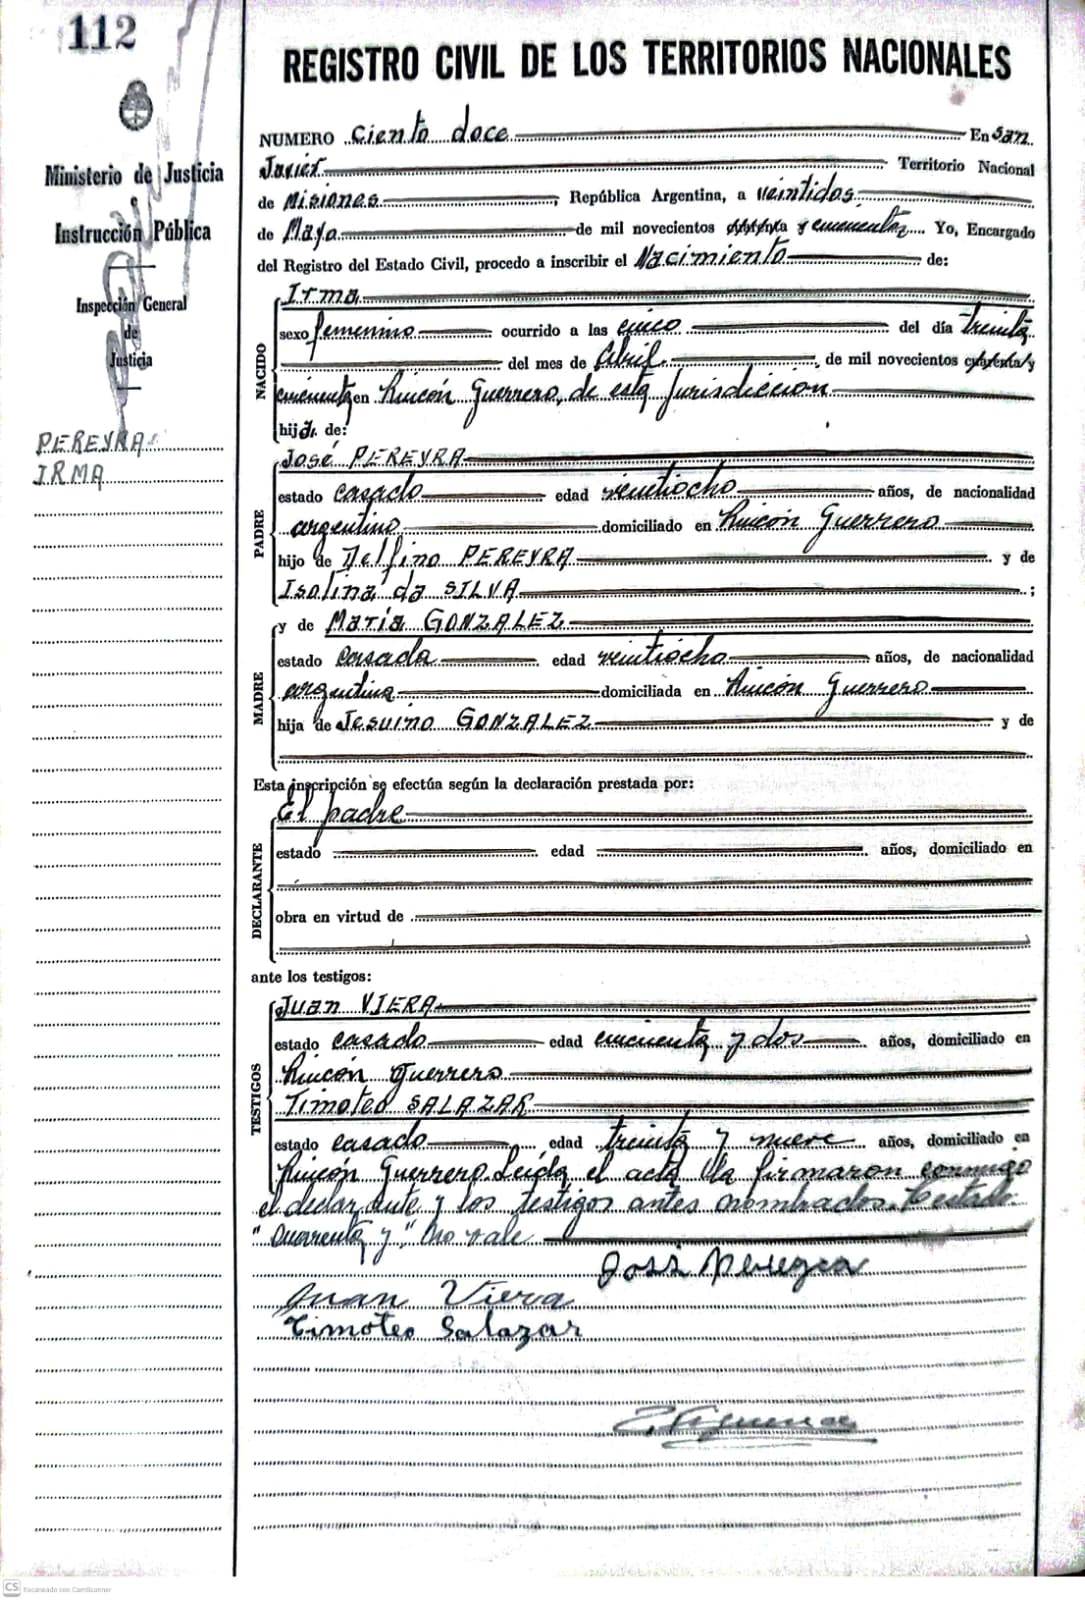 112
REGISTRO CIVIL DE LOS TERRITORIOS NACIONALES
Ministerio de Justicia
e
Instrucción Pública
Inspección General
de
Justicia
PEREYRA
IRMA
NUMERO Ciento doce En San
Javier Territorio Nacional
de Misiones, República Argentina, a veintidos
de Mayo de mil novecientos y cincuenta Yo, Encargado
del Registro del Estado Civil, procedo a inscribir el Nacimiento de:
NACIDO
Irma
sexo femenino ocurrido a las cinco del día treinta
del mes de Abril, de mil novecientos cuarenta y
cincuenta en Rincón Guerrero, de esta jurisdicción
hija de:
PADRE
José PEREYRA
estado casado edad veintiocho años, de nacionalidad
argentino domiciliado en Rincón Guerrero
hijo de Delfino PEREYRA y de
Isolina da SILVA;
MADRE
y de María GONZALEZ
estado casada edad veintiocho años, de nacionalidad
argentina domiciliada en Rincón Guerrero
hija de Jesuino GONZALEZ y de
Esta inscripción se efectúa según la declaración prestada por:
DECLARANTE
El padre
estado edad años, domiciliado en
obra en virtud de
ante los testigos:
TESTIGOS
Juan VIERA
estado casado edad cincuenta y dos años, domiciliado en
Rincón Guerrero
Timoteo SALAZAR
estado casado edad treinta y nueve años, domiciliado en
Rincón Guerrero. Leída el acta la firmaron conmigo
el declarante y los testigos antes nombrados. Testado:
"Cuarenta y", No vale
José Pereyra
Juan Viera
Timoteo Salazar
CS Escaneado con CamScanner